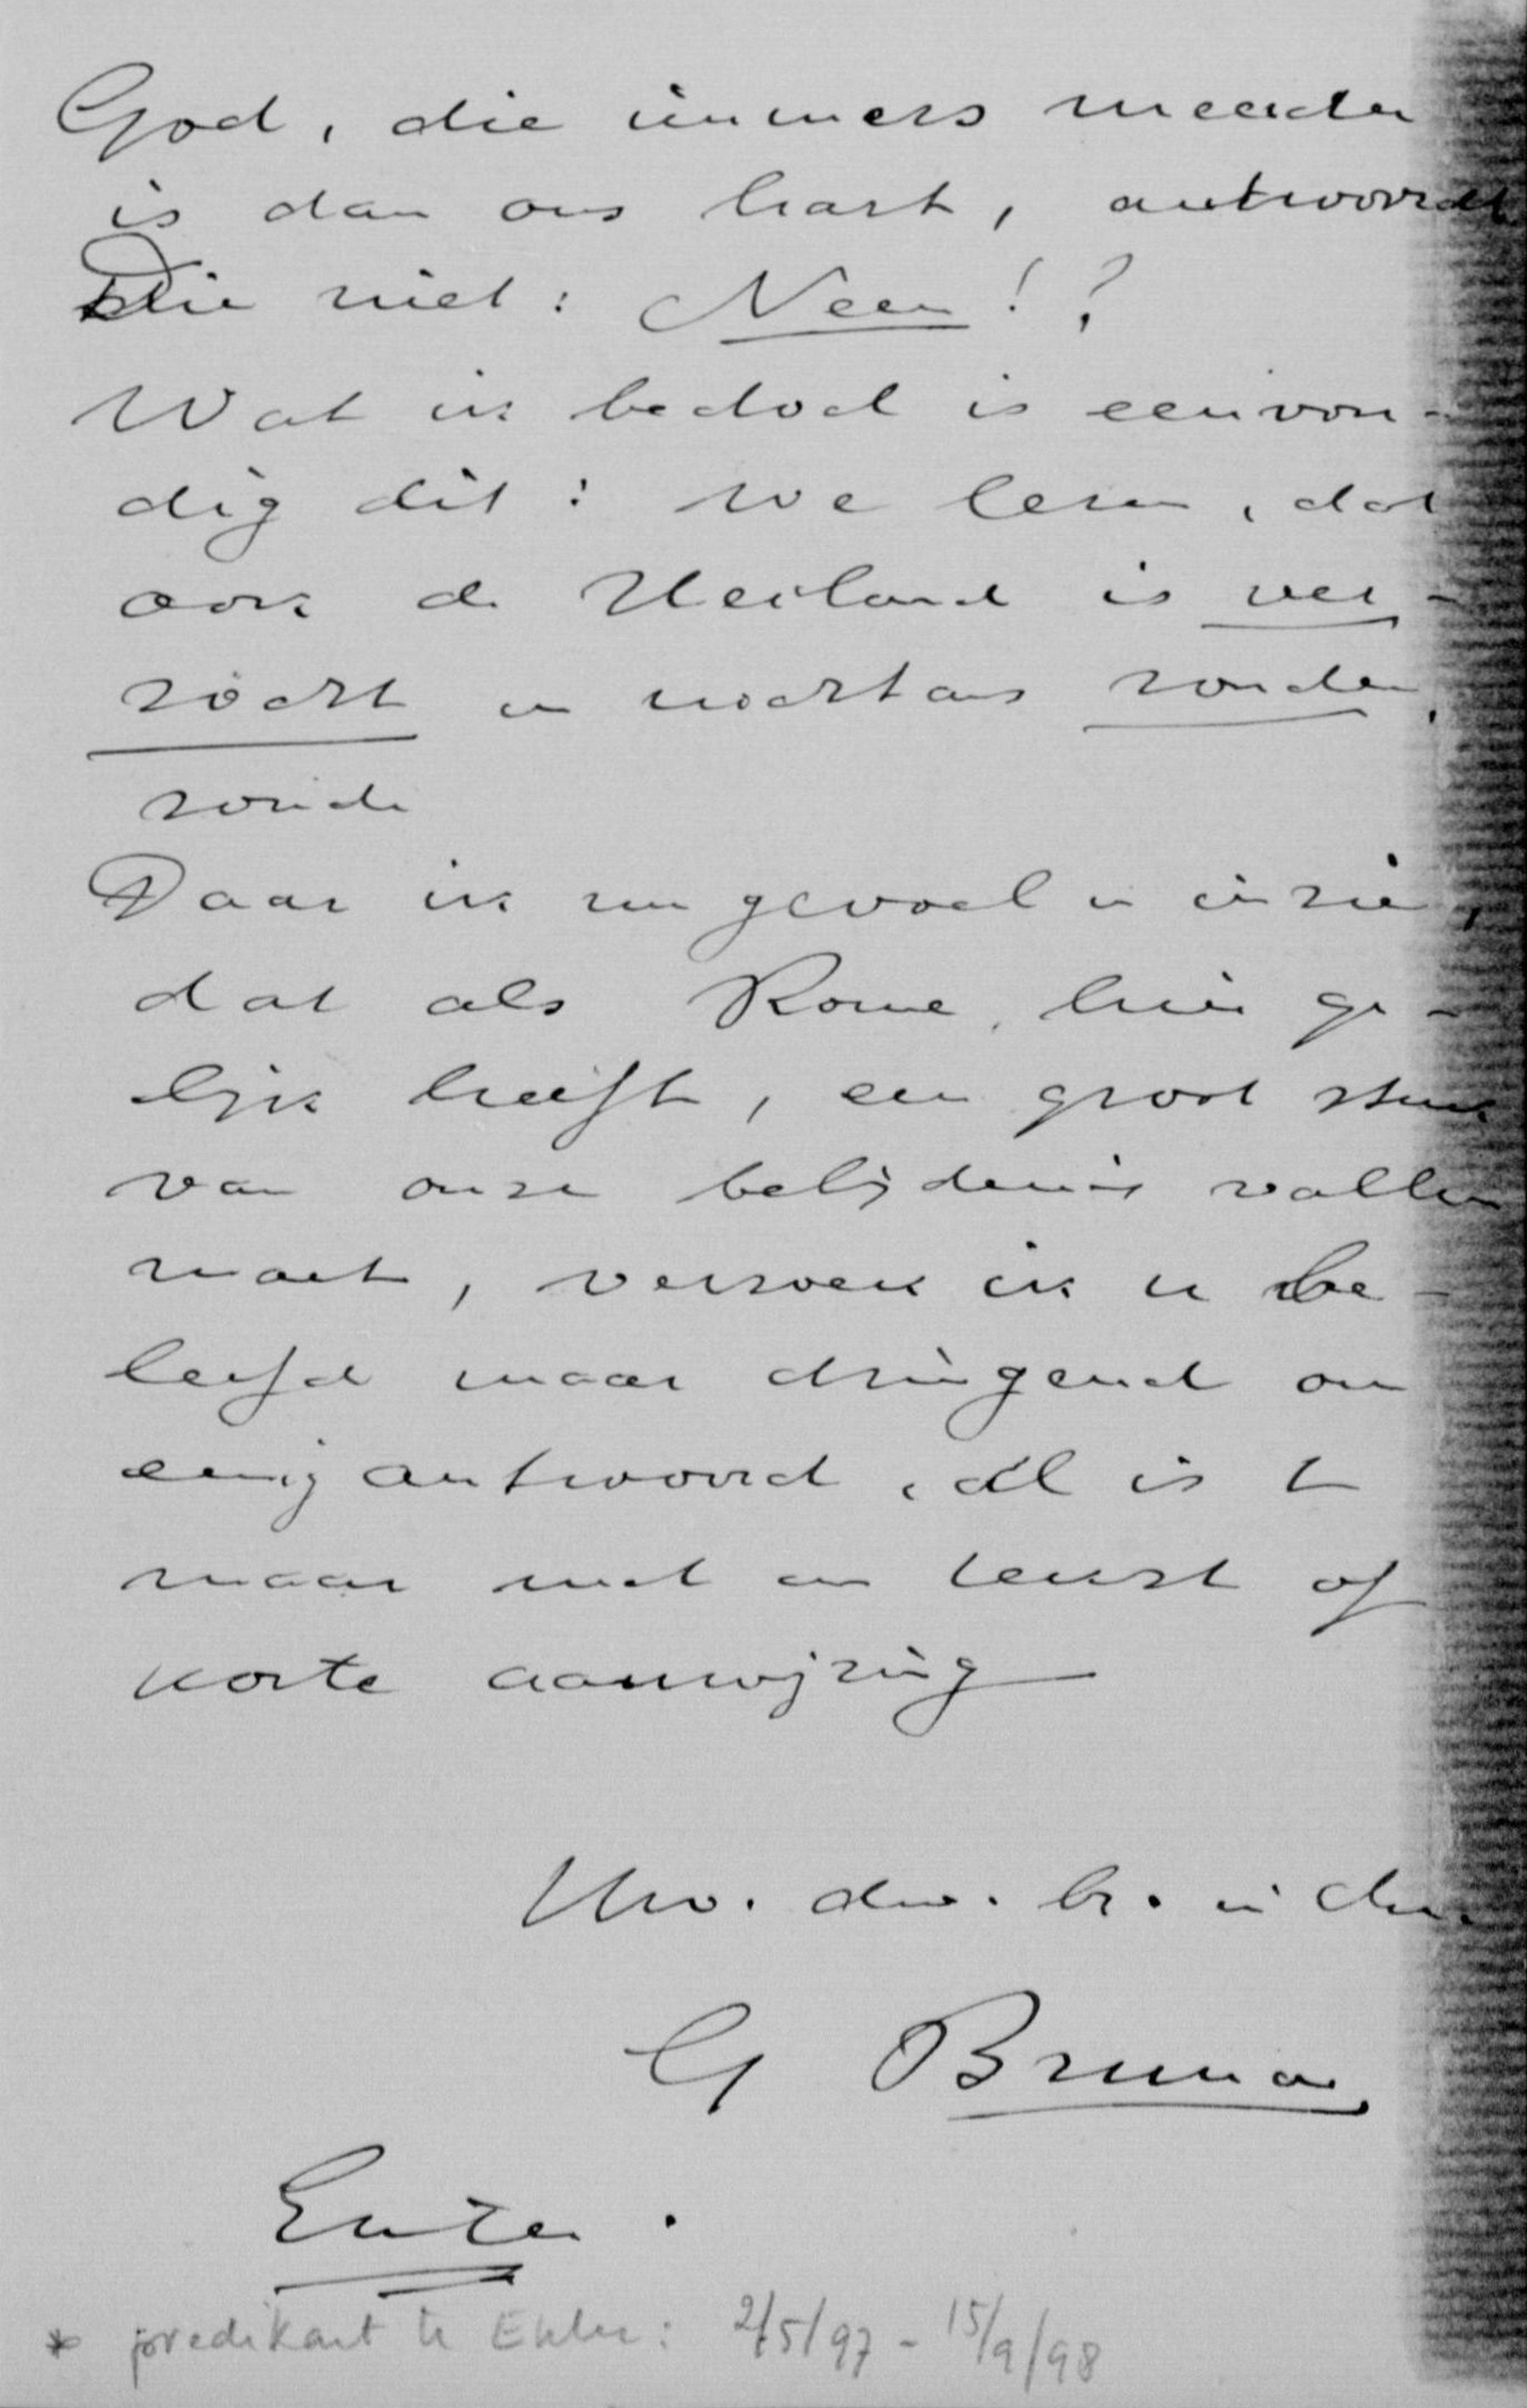 God, die immers meerder
is dan ons hart, antwoordt
Die niet: Neen!?
Wat ik bedoel is eenvou-
dig dit: we lezen, dat
ook de Heiland is ver-
zocht en nochtans zonder
zonde
Daar ik nu gevoel en inzie,
dat als Rome, hier ge-
lijk heeft, een groot stuk
van onze belijdenis vallen
moet, verzoek ik u be-
leefd maar dringend om
eenig antwoord, al is 't
maar met een tekst of
korte aanwijzing
Uw. dw. br. in Chr.
G Bruna
Enter.
* predikant te Enter: 2/5/97 - 15/9/98